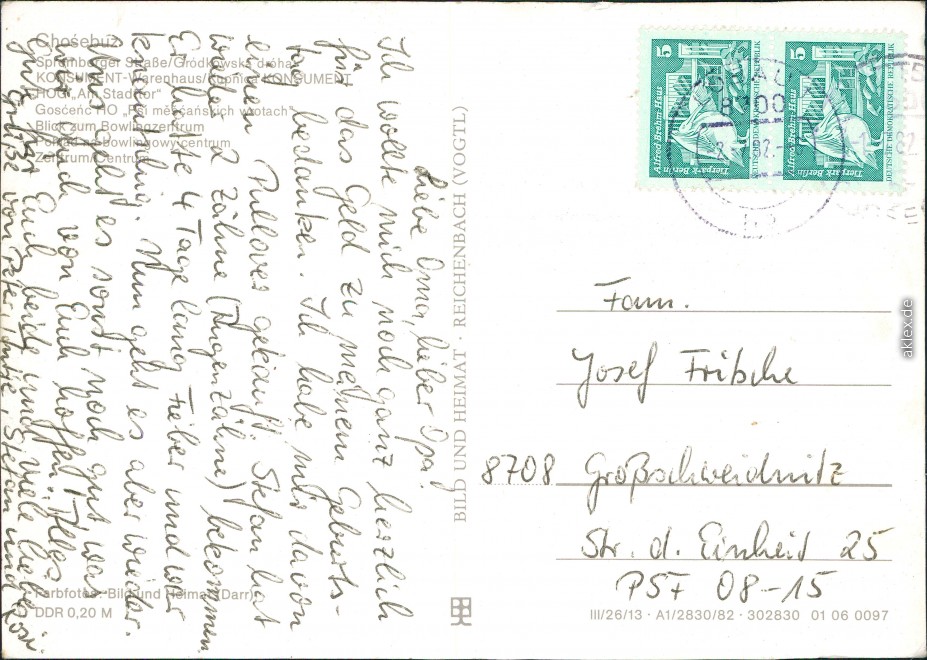 Chośebuz
Spremberger Straße/Gródkowska droha
KONSUMENT-Warenhaus/Kupnica KONSUMENT
HOG „Am Stadttor“
Gosćeńc HO „Pśi měsćańskich wrotach“
Blick zum Bowlingzentrum
Pohlad na bowlingowy centrum
Zentrum/Centrum
Liebe Oma, lieber Opa!
Ich wollte mich noch ganz herzlich
für das Geld zu meinem Geburts-
tag bedanken. Ich habe mir davon
einen Pullover gekauft. Stefan hat
wieder 2 Zähne (Augenzähne) bekommen.
Er hatte 4 Tage lang Fieber und war
knatschig. Nun geht es aber wieder.
Uns geht es sonst noch gut, was
wir auch von Euch hoffen. Alles
Gute für Euch beide und viele liebe
Grüße von Peter, Stefan und
Farbfotos: Bild und Heimat (Darr)
DDR 0,20 M
BILD UND HEIMAT · REICHENBACH (VOGTL)
5
Alfred-Brehm-Haus
Tierpark Berlin
DEUTSCHE DEMOKRATISCHE REPUBLIK
5
Alfred-Brehm-Haus
Tierpark Berlin
DEUTSCHE DEMOKRATISCHE REPUBLIK
8700
Fam.
Josef Fritsche
8708 Großschweidnitz
Str. d. Einheit 25
PSF 08-15
III/26/13 · A1/2830/82 · 302830 01 06 0097
aklex.de